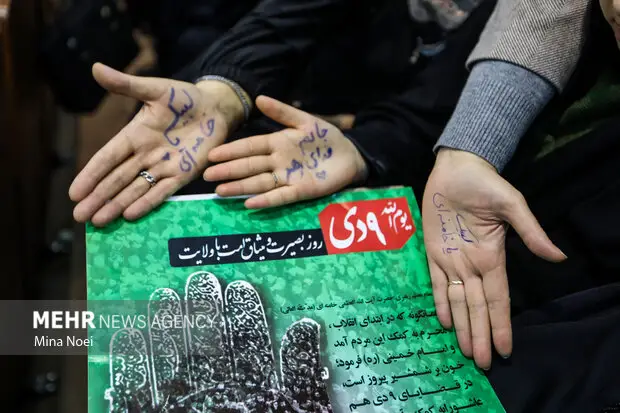 لبیک
یا
خامنه‌ای
جانم
فدای رهبر
لبیک
یا خامنه‌ای
یوم الله
۹ دی
روز بصیرت و میثاق امت با ولایت
همانگونه که در ابتدای انقلاب،
محرم به کمک این مردم آمد
و امام خمینی (ره) فرمود؛
خون بر شمشیر پیروز است،
در قضایای ۹ دی هم
MEHR NEWS AGENCY
Mina Noei